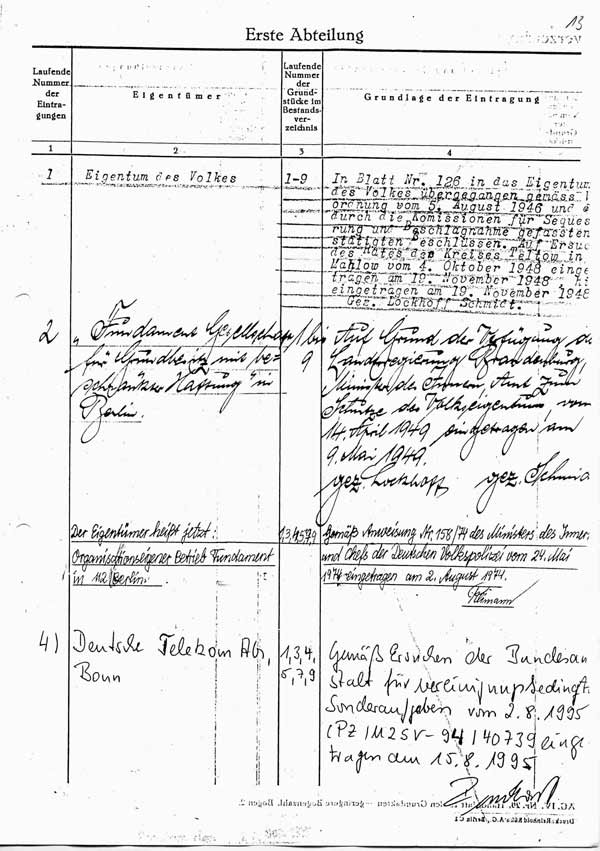 13
Erste Abteilung
Laufende
Nummer
der
Eintra-
gungen
Eigentümer
Laufende
Nummer
der
Grund-
stücke im
Bestands-
ver-
zeichnis
Grundlage der Eintragung
1
2
3
4
1
Eigentum des Volkes
1-9
In Blatt Nr. 126 in das Eigentum
des Volkes übergegangen gemäss
ordnung vom 5. August 1946 und
durch die Komissionen für Seques
rung und Beschlagnahme gefassten
stätigten Beschlüssen. Auf Ersuc
des Rates des Kreises Teltow in
Mahlow vom 4. Oktober 1948 einge
tragen am 19. November 1948
eingetragen am 19. November 1948
Gez. Lockhoff Schmidt.
2
"Fundament Gesellschaft
für Grundbesitz mit be-
schränkter Haftung" in
Berlin.
1 bis
9
Auf Grund der Verfügung de
Landesregierung Brandenburg,
Minister des Innern, Amt zum
Schutze des Volkseigentum, vom
14. April 1949 eingetragen am
9. Mai 1949.
gez. Lockhoff gez. Schmid
Der Eigentümer heißt jetzt:
Organisationseigener Betrieb Fundament
in 112 Berlin.
1,3,4,5,7,9
Gemäß Anweisung Nr. 158/74 des Ministers des Inner
und Chefs der Deutschen Volkspolizei vom 24. Mai
1974 eingetragen am 2. August 1974.
4)
Deutsche Telekom AG,
Bonn
1,3,4,
5,7,9
Gemäß Ersuchen der Bundesan
stalt für vereinigungsbedingte
Sonderaufgaben vom 2.8.1995
(PZ/M2SV-94/40739 einge
tragen am 15.8.1995